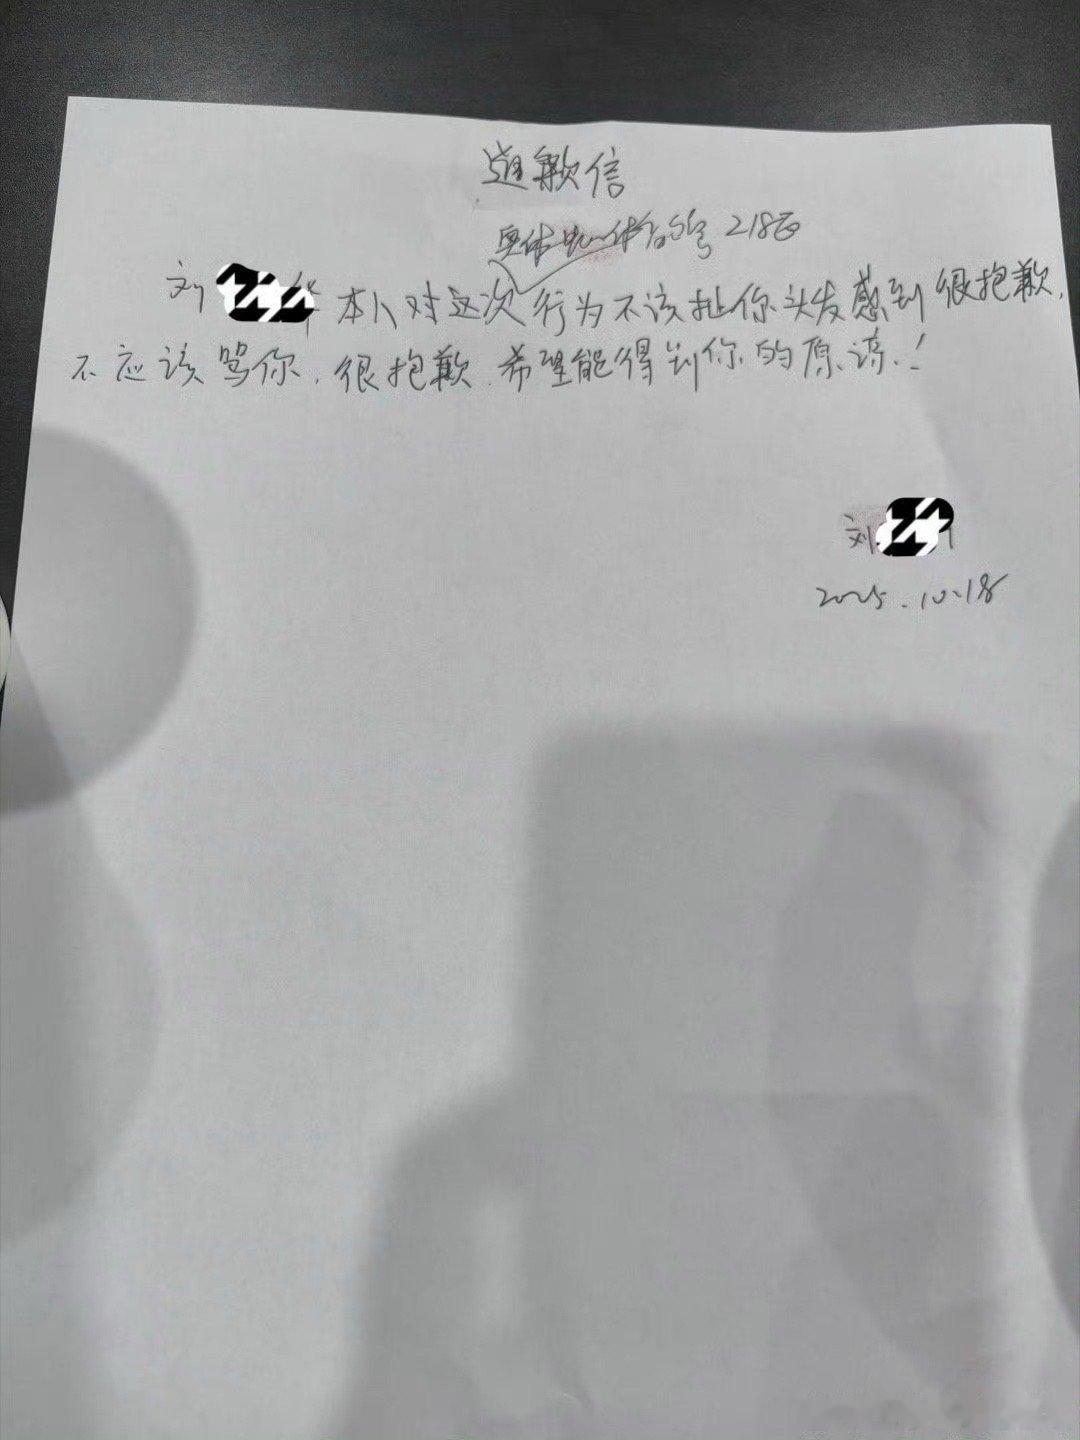 道歉信
奥体 218
刘 本人对这次行为不该扯你头发感到很抱歉,
不应该骂你,很抱歉.希望能得到你的原谅.!
刘
2025.10.18